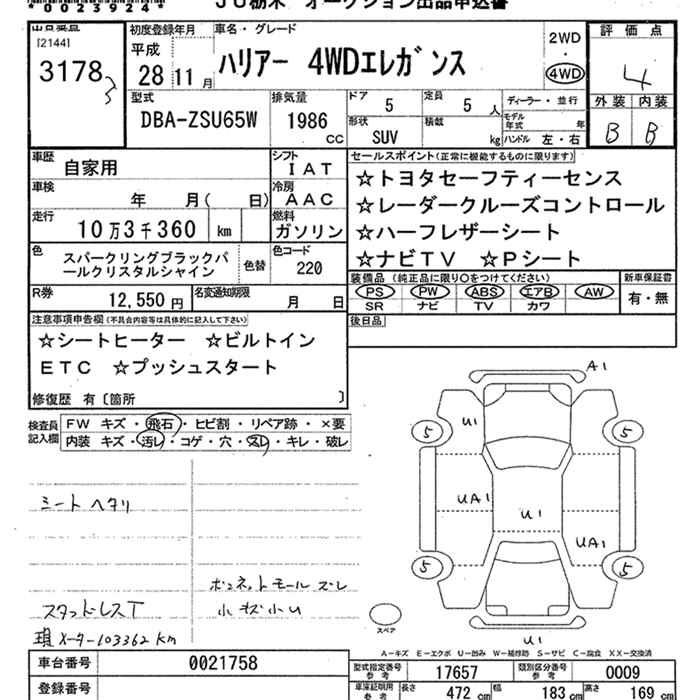 *0023924*
JU栃木 オークション出品申込書
[2144]
3178
初度登録年月
平成
28年 11月
車名・グレード
ハリアー 4WDエレガンス
2WD
・
4WD
評価点
4
外装 内装
B B
型式
DBA-ZSU65W
排気量
1986 CC
ドア 5
定員 5 人
形状 SUV
積載 kg
ディーラー・並行
モデル年式 年
ハンドル 左・右
車歴 自家用
シフト IAT
車検 年 月( 日)
冷房 AAC
走行 10万3千360 km
燃料 ガソリン
色 スパークリングブラックパールクリスタルシャイン
色替
色コード 220
R券 12,550円
名変通知期限 月 日
セールスポイント(正常に機能するものに限ります)
☆トヨタセーフティーセンス
☆レーダークルーズコントロール
☆ハーフレザーシート
☆ナビTV ☆Pシート
装備品 (純正品に限り○をつけてください)
PS PW ABS エアB AW
SR ナビ TV カワ
新車保証書
有・無
後日品
注意事項申告欄(不具合内容等は具体的に記入して下さい)
☆シートヒーター ☆ビルトイン
ETC ☆プッシュスタート
修復歴 有〔箇所 〕
検査員記入欄
FW キズ・飛石・ヒビ割・リペア跡・×要
内装 キズ・汚レ・コゲ・穴・スレ・キレ・破レ
シート ヘタリ
ボンネットモール ズレ
小キズ小U
スタッドレスT
現メーター103362km
A1
U1
5
5
UA1
U1
UA1
5
5
スペア
U1
A-キズ E-エクボ U-凹み W-補修跡 S-サビ C-腐食 XX-交換済
車台番号 0021758
登録番号
型式指定番号 参考 17657
類別区分番号 参考 0009
車庫証明用 参考
長さ 472 cm
幅 183 cm
高さ 169 cm